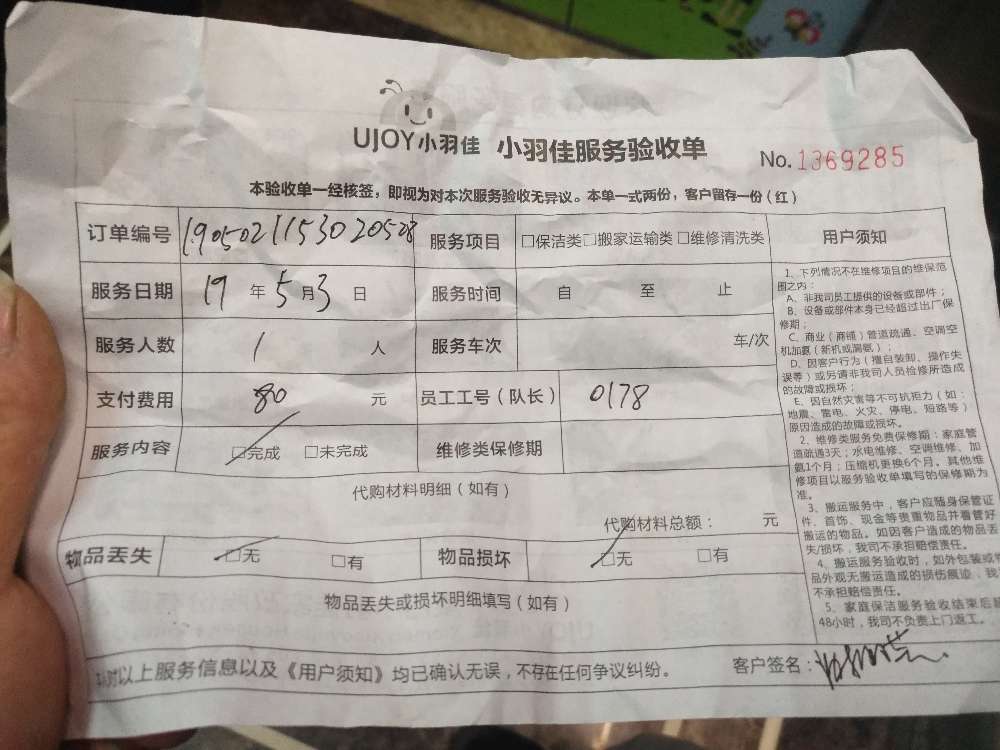 UJOY小羽佳 小羽佳服务验收单 No.1369285
本验收单一经核签，即视为对本次服务验收无异议。本单一式两份，客户留存一份（红）
订单编号 190502115302050 服务项目 □保洁类□搬家运输类□维修清洗类
服务日期 19 年 5 月 3 日 服务时间 自 至 止
服务人数 1 人 服务车次 车/次
支付费用 80 元 员工工号（队长） 0178
服务内容 □完成 □未完成 维修类保修期
代购材料明细（如有）
代购材料总额： 元
物品丢失 □无 □有 物品损坏 □无 □有
物品丢失或损坏明细填写（如有）
以上服务信息以及《用户须知》均已确认无误，不存在任何争议纠纷。 客户签名：
用户须知
1、下列情况不在维修项目的维保范
围之内：
A、非我司员工提供的设备或部件；
B、设备或部件本身已经超过出厂保
修期；
C、商业（商铺）管道疏通、空调空
机加氨（新机或漏氨）；
D、因客户行为（擅自装卸、操作失
误等）或另请非我司人员检修所造成
的故障或损坏；
E、因自然灾害等不可抗拒力（如：
地震、雷电、火灾、停电、短路等）
原因造成的故障或损坏。
2、维修类服务免费保修期：家庭管
道疏通3天；水电维修、空调维修、加
氨1个月；压缩机更换6个月。其他维
修项目以服务验收单填写的保修期为
准。
3、搬运服务中，客户应随身保管证
件、首饰、现金等贵重物品并看管好
搬运的物品。如因客户造成的物品丢
失/损坏，我司不承担赔偿责任。
4、搬运服务验收时，如外包装或
品外观无搬运造成的损伤痕迹，我
不承担赔偿责任。
5、家庭保洁服务验收结束后超
48小时，我司不负责上门返工。